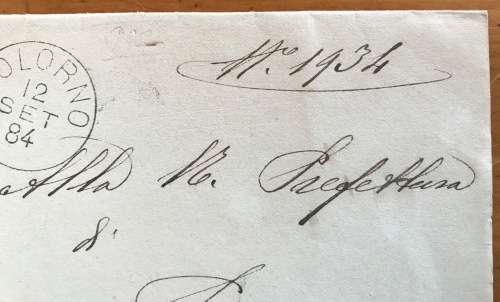 OLORNO
12
SET
84
N.º 1934
Alla R. Prefettura
di